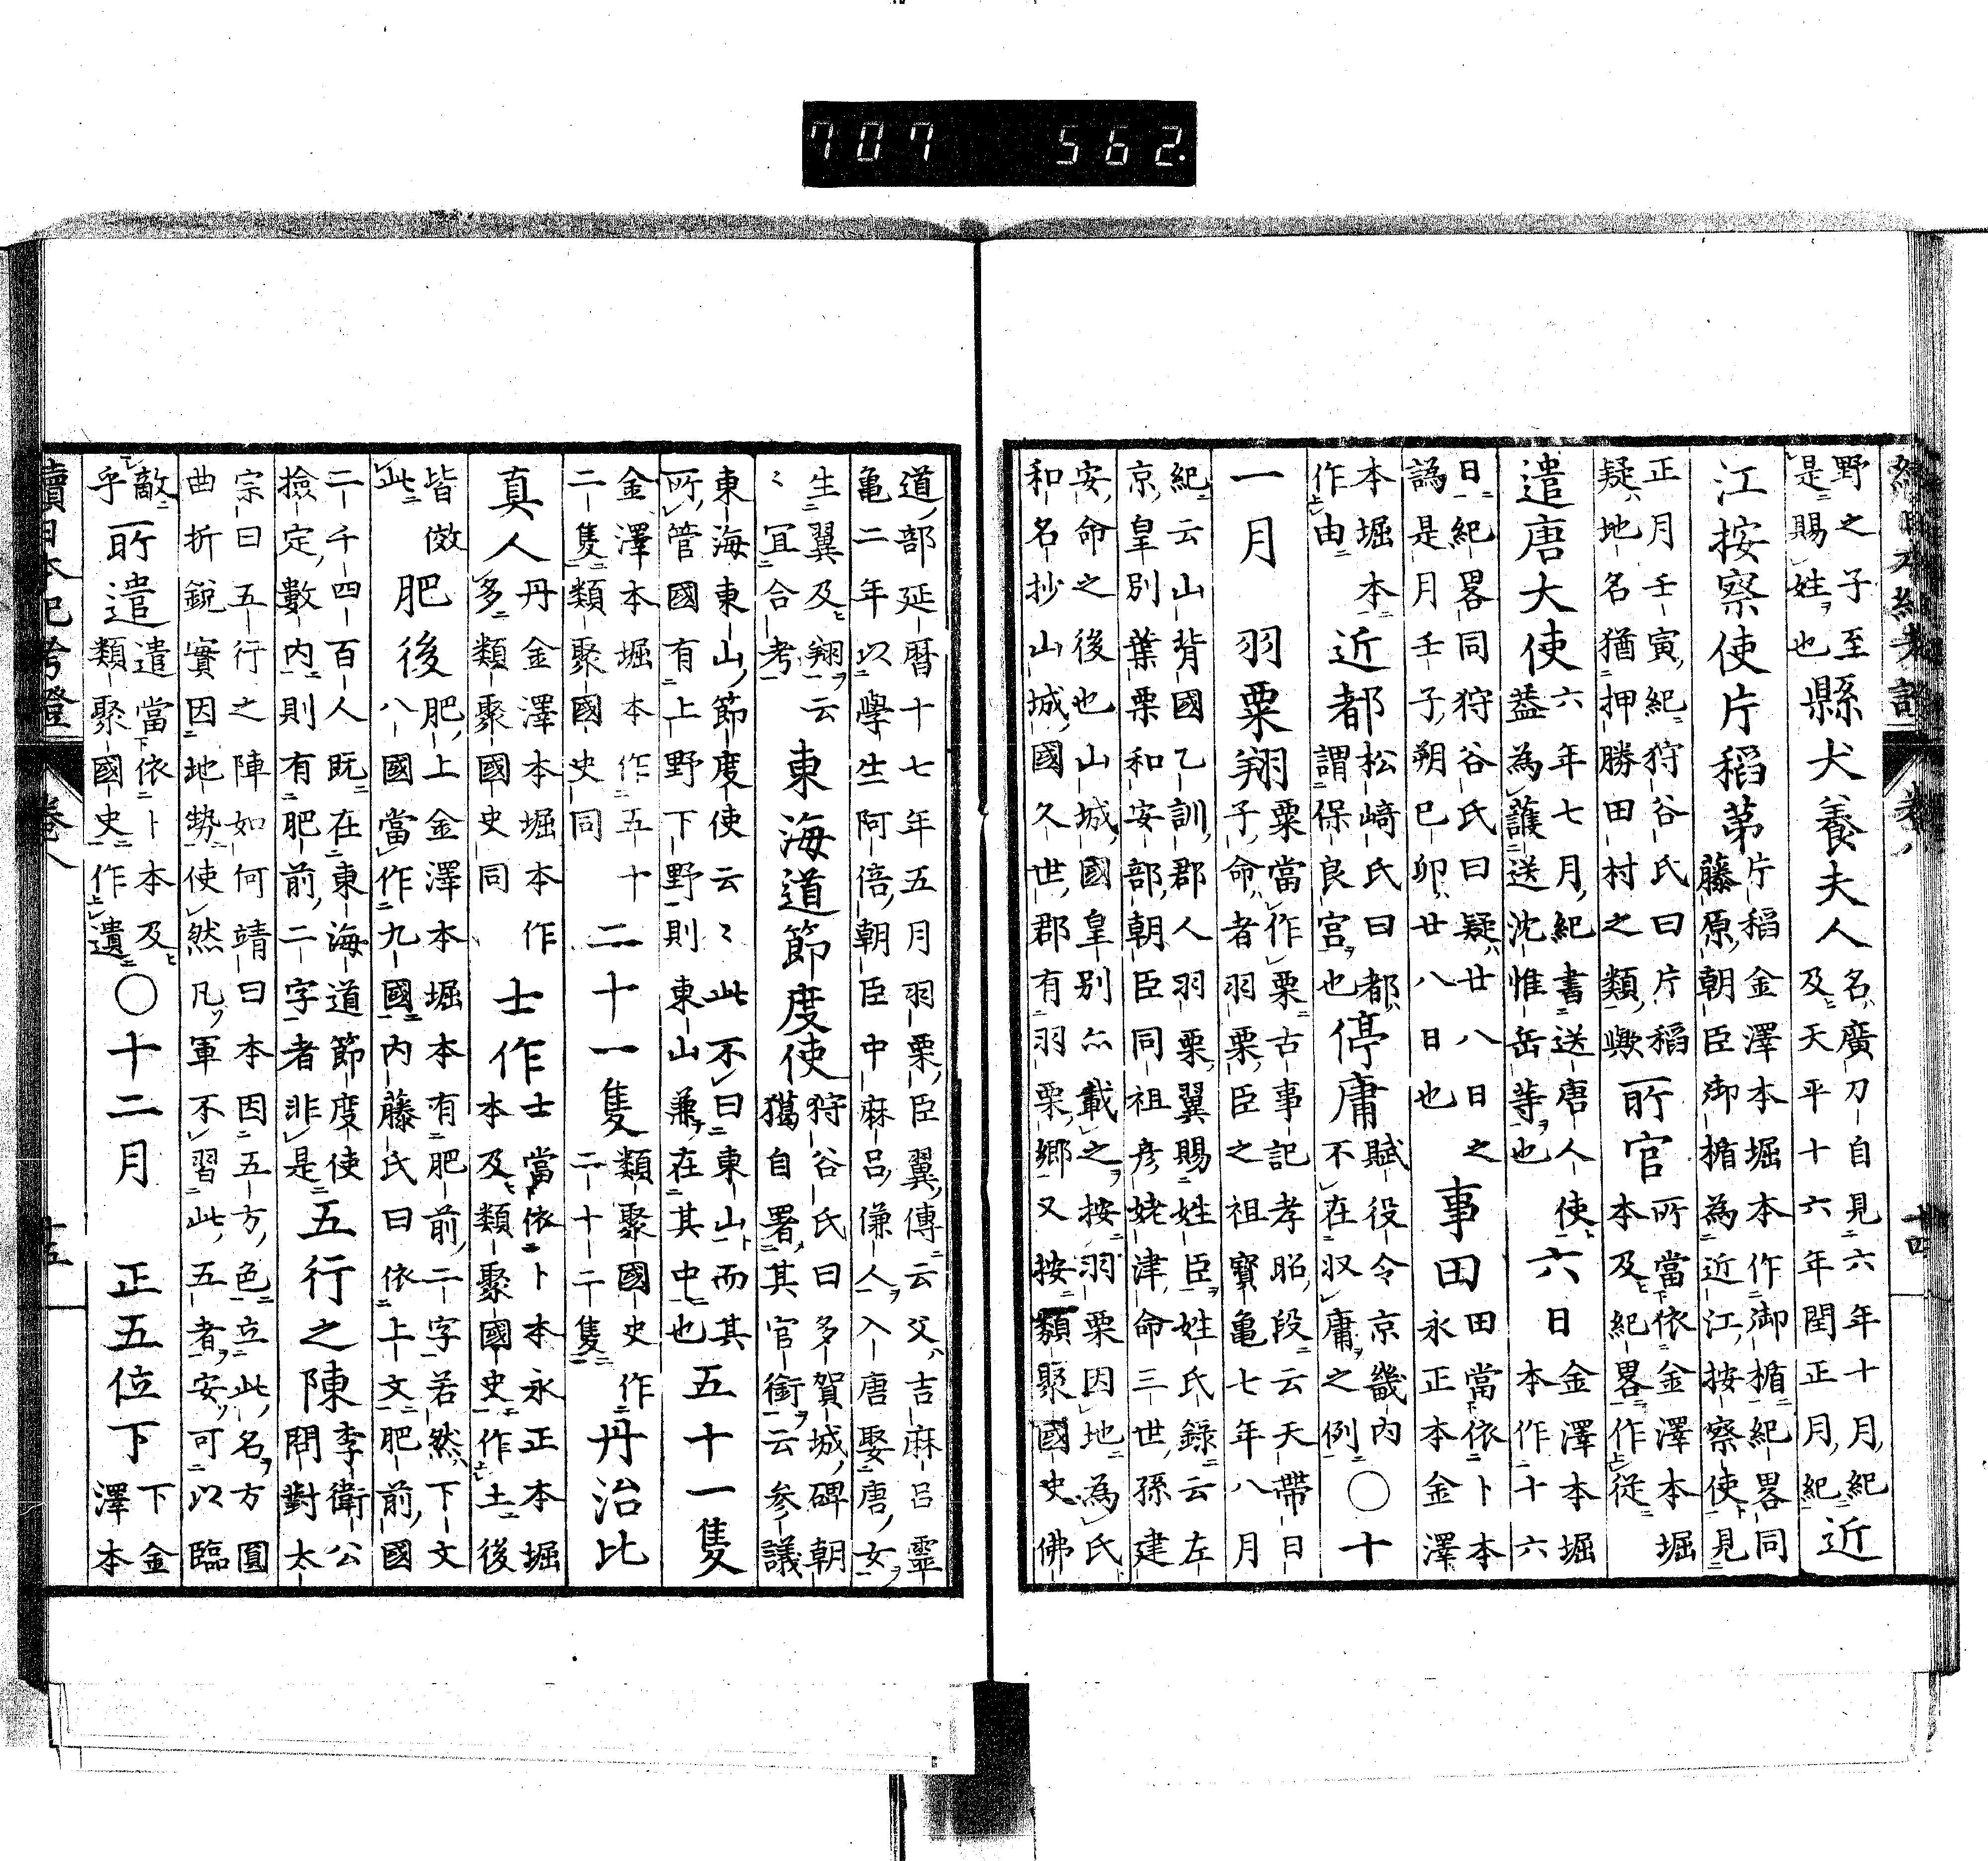 707 562.
續日本紀考證 卷八 十四
野之子至
是賜姓也
縣犬養夫人
名廣刀自見六年十月紀
及天平十六年閏正月紀
近
江按察使片稻第
片稻金澤本堀本作御楯紀畧同
藤原朝臣御楯為近江按察使見
正月壬寅紀狩谷氏曰片稻
疑地名猶押勝田村之類歟
所官
所當依金澤本堀
本及紀畧作從
遣唐大使
六年七月紀書送唐人使
蓋為護送沈惟岳等也
六日
金澤本堀
本作十六
日紀畧同狩谷氏曰疑廿八日之
譌是月壬子朔己卯廿八日也
事田
田當依卜本
永正本金澤
本堀本
作由
近都
松﨑氏曰都
謂保良宮也
停庸
賦役令京畿内
不在収庸之例
○十
一月
羽粟翔
粟當作栗古事記孝昭段云天帶日
子命者羽栗臣之祖寶亀七年八月
紀云山背國乙訓郡人羽栗翼賜姓臣姓氏錄云左
京皇別葉栗和安部朝臣同祖彦姥津命三世孫建
安命之後也山城國皇別亦載之按羽栗因地為氏
和名抄山城國久世郡有羽栗鄉又按類聚國史佛
道部延曆十七年五月羽栗臣翼傳云父吉麻呂靈
亀二年以學生阿倍朝臣中麻呂傔人入唐娶唐女
生翼及翔云
〻冝合考
東海道節度使
狩谷氏曰多賀城碑朝
獦自署其官銜云参議
東海東山節度使云〻此不曰東山而其
所管國有上野下野則東山兼在其中也
五十一隻
金澤本堀本作五十
二隻類聚國史同
二十一隻
類聚國史作
二十二隻
丹治比
真人
丹金澤本堀本作
多類聚國史同
士作
士當依卜本永正本堀
本及類聚國史作土後
皆傚
此
肥後
肥上金澤本堀本有肥前二字若然下文
八國當作九國内藤氏曰依上文肥前國
二千四百人既在東海道節度使
撿定數内則有肥前二字者非是
五行之陳
李衛公
問對太
宗曰五行之陣如何靖曰本因五方色立此名方圓
曲折銳實因地勢使然凡軍不習此五者安可以臨
敵
乎
所遣
遣當依卜本及
類聚國史作遺
○十二月
正五位下
下金
澤本
續日本紀考證 卷八 十五